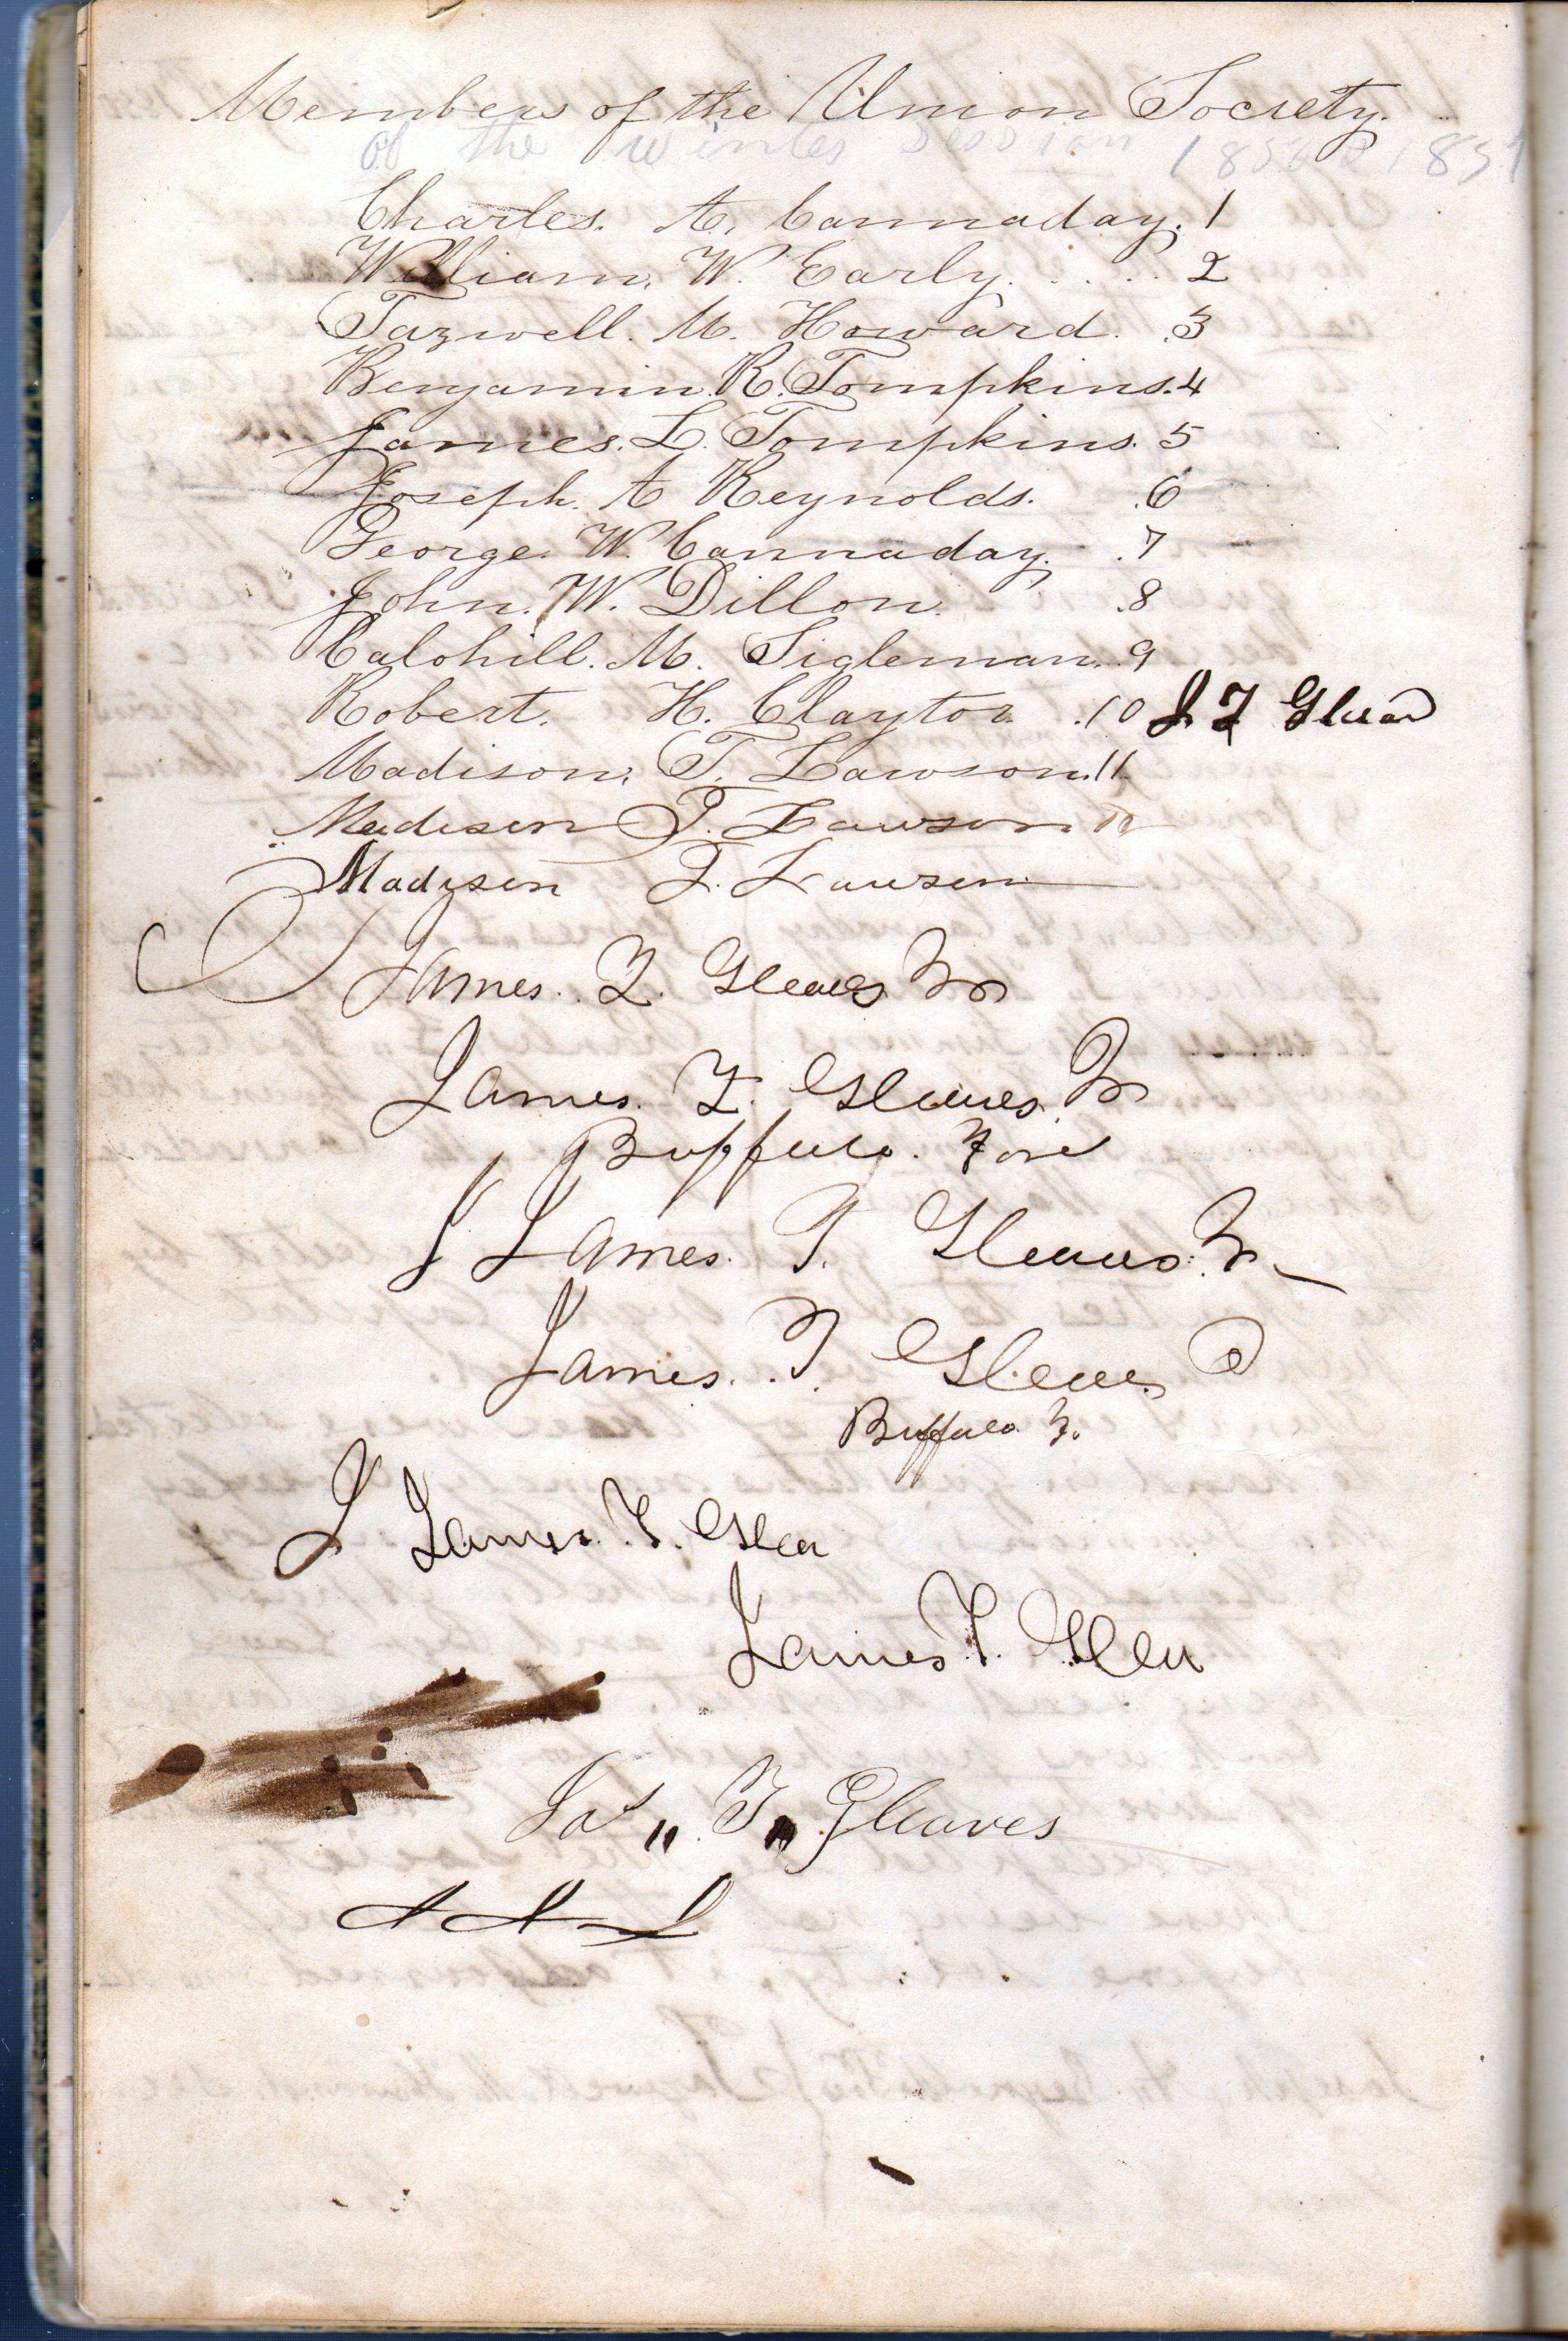 Members of the Union Society.
of the winter session 1856 & 1857
Charles. A. Cannaday. 1
William. W. Early. . . . . 2
Tazwell. M. Howard. .3
Benjamin. R. Tompkins. 4
James. L. Tompkins. 5
Joseph. A Reynolds. .6
George. W. Cannaday. .7
John. W. Dillon. .8
Calohill. M. Sigleman. .9
Robert. H. Clayton .10 J. T Gleav
Madison. T. Lawson. 11.
Madison T. Lawson 11
Madison T. Lawson
James. T. Gleaves Jr
James. T. Gleaves Jr
Buffalo. Forge
J James. T. Gleaves. Jr
James. T Gleaves
Buffalo F.
J James. T. Glea
James T. Glea
Jas „ T „ Gleaves